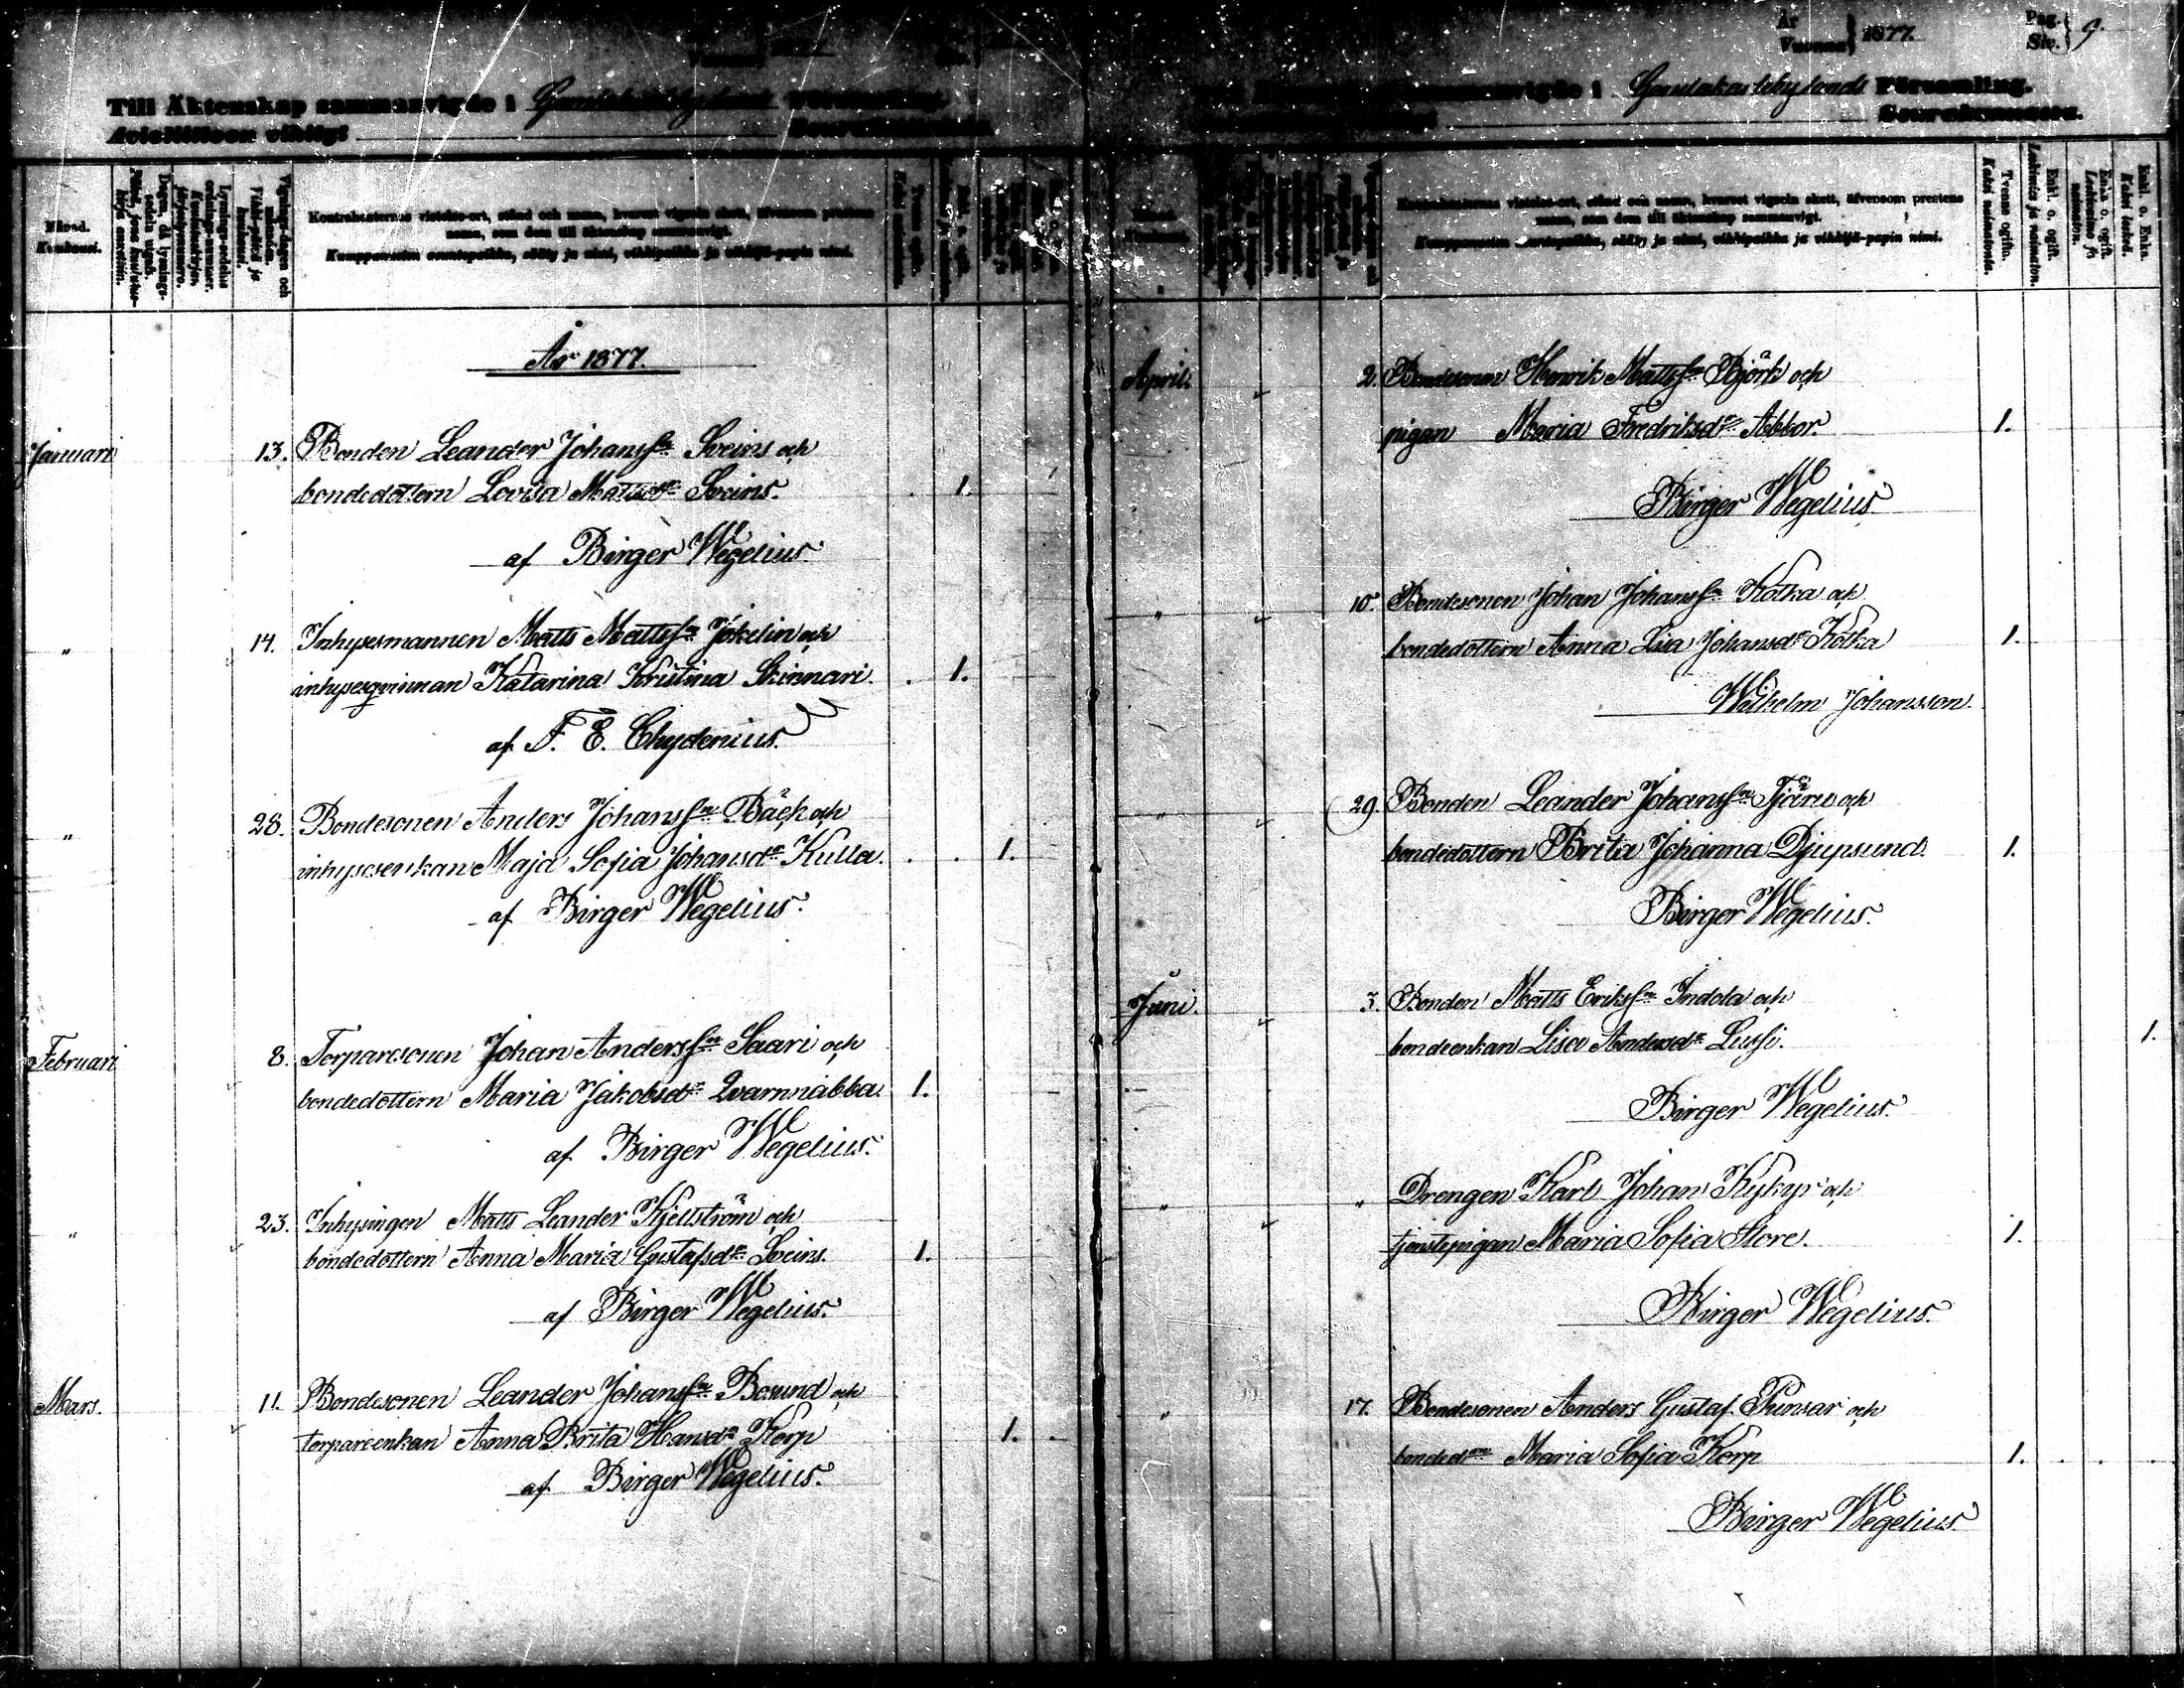 Till Äktenskap sammanvigde i
År 1877.
Januari 13. Bonden Leander Johansson Sveins och
bondedottern Lovisa Mattsdr Sveins. 1.
af Birger Wegelius.
" 14. Inhysesmannen Matts Mattsson Jokelin och
inhysesqvinnan Katarina Kristina Skinnari. 1.
af F. E. Chydenius.
" 28. Bondesonen Anders Johansson Bäck och
inhysesenkan Maja Sofia Johansdr Kulla. 1.
af Birger Wegelius.
Februari 8. Torparesonen Johan Andersson Saari och
bondedottern Maria Jakobsdr Qvarnnabba. 1.
af Birger Wegelius.
" 23. Inhysingen Matts Leander Kjellström och
bondedottern Anna Maria Gustafsdr Sveins. 1.
af Birger Wegelius.
Mars. 11. Bondesonen Leander Johansson Bosund och
torpareenkan Anna Brita Hansdr Korp 1.
af Birger Wegelius.
År
Vuonna 1877.
Pag.
Siv. 9.
Gamlakarlebylands Församling.
Kontrahenternas vistelse-ort, stånd och namn, hvarest vigseln skett, äfvensom prestens
namn, som dem till äktenskap sammanvigt.
Kumppanusten asuntopaikka, sääty ja nimi, vihkipaikka ja vihkijä-papin nimi.
April. 2. Bondesonen Henrik Mattsson Björk och
pigan Maria Fredriksdr Abbor. 1.
Birger Wegelius
" 10. Bondesonen Johan Johansson Kotka och
bondedottern Anna Lisa Johansdr Kotka 1.
Wilhelm Johansson.
" 29. Bonden Leander Johansson Tjäru och
bondedottern Brita Johanna Djupsund. 1.
Birger Wegelius.
Juni. 3. Bonden Matts Eriksson Indola och
bondeenkan Lisa Andersdr Lussi. 1.
Birger Wegelius.
" " Drengen Karl Johan Kykyr och
tjenstepigan Maria Sofia Store. 1.
Birger Wegelius.
" 17. Bondesonen Anders Gustaf Punsar och
bonded:n Maria Sofia Korp 1.
Birger Wegelius